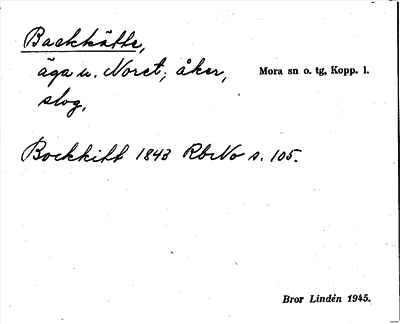 Backkätte,
äga u. Noret; åker, Mora sn o. tg, Kopp. l.
slog,
Bockkitt 1843 RbNo s. 105.
Bror Lindén 1945.